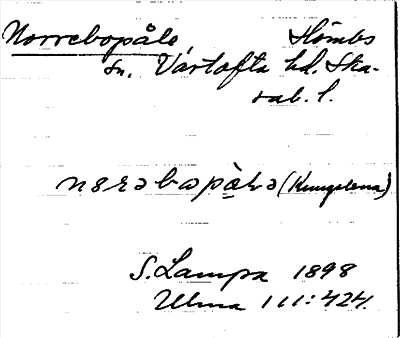 Norrebopåle Hömbs
sn. Vartofta hd. Ska-
rab. l.
nɘrabopàla (Kungslena)
S. Lampa 1898
Ulma 111:424.